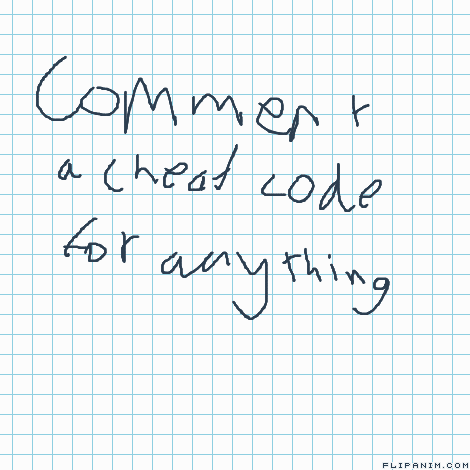 Comment
a cheat code
for anything
FLIPANIM.COM